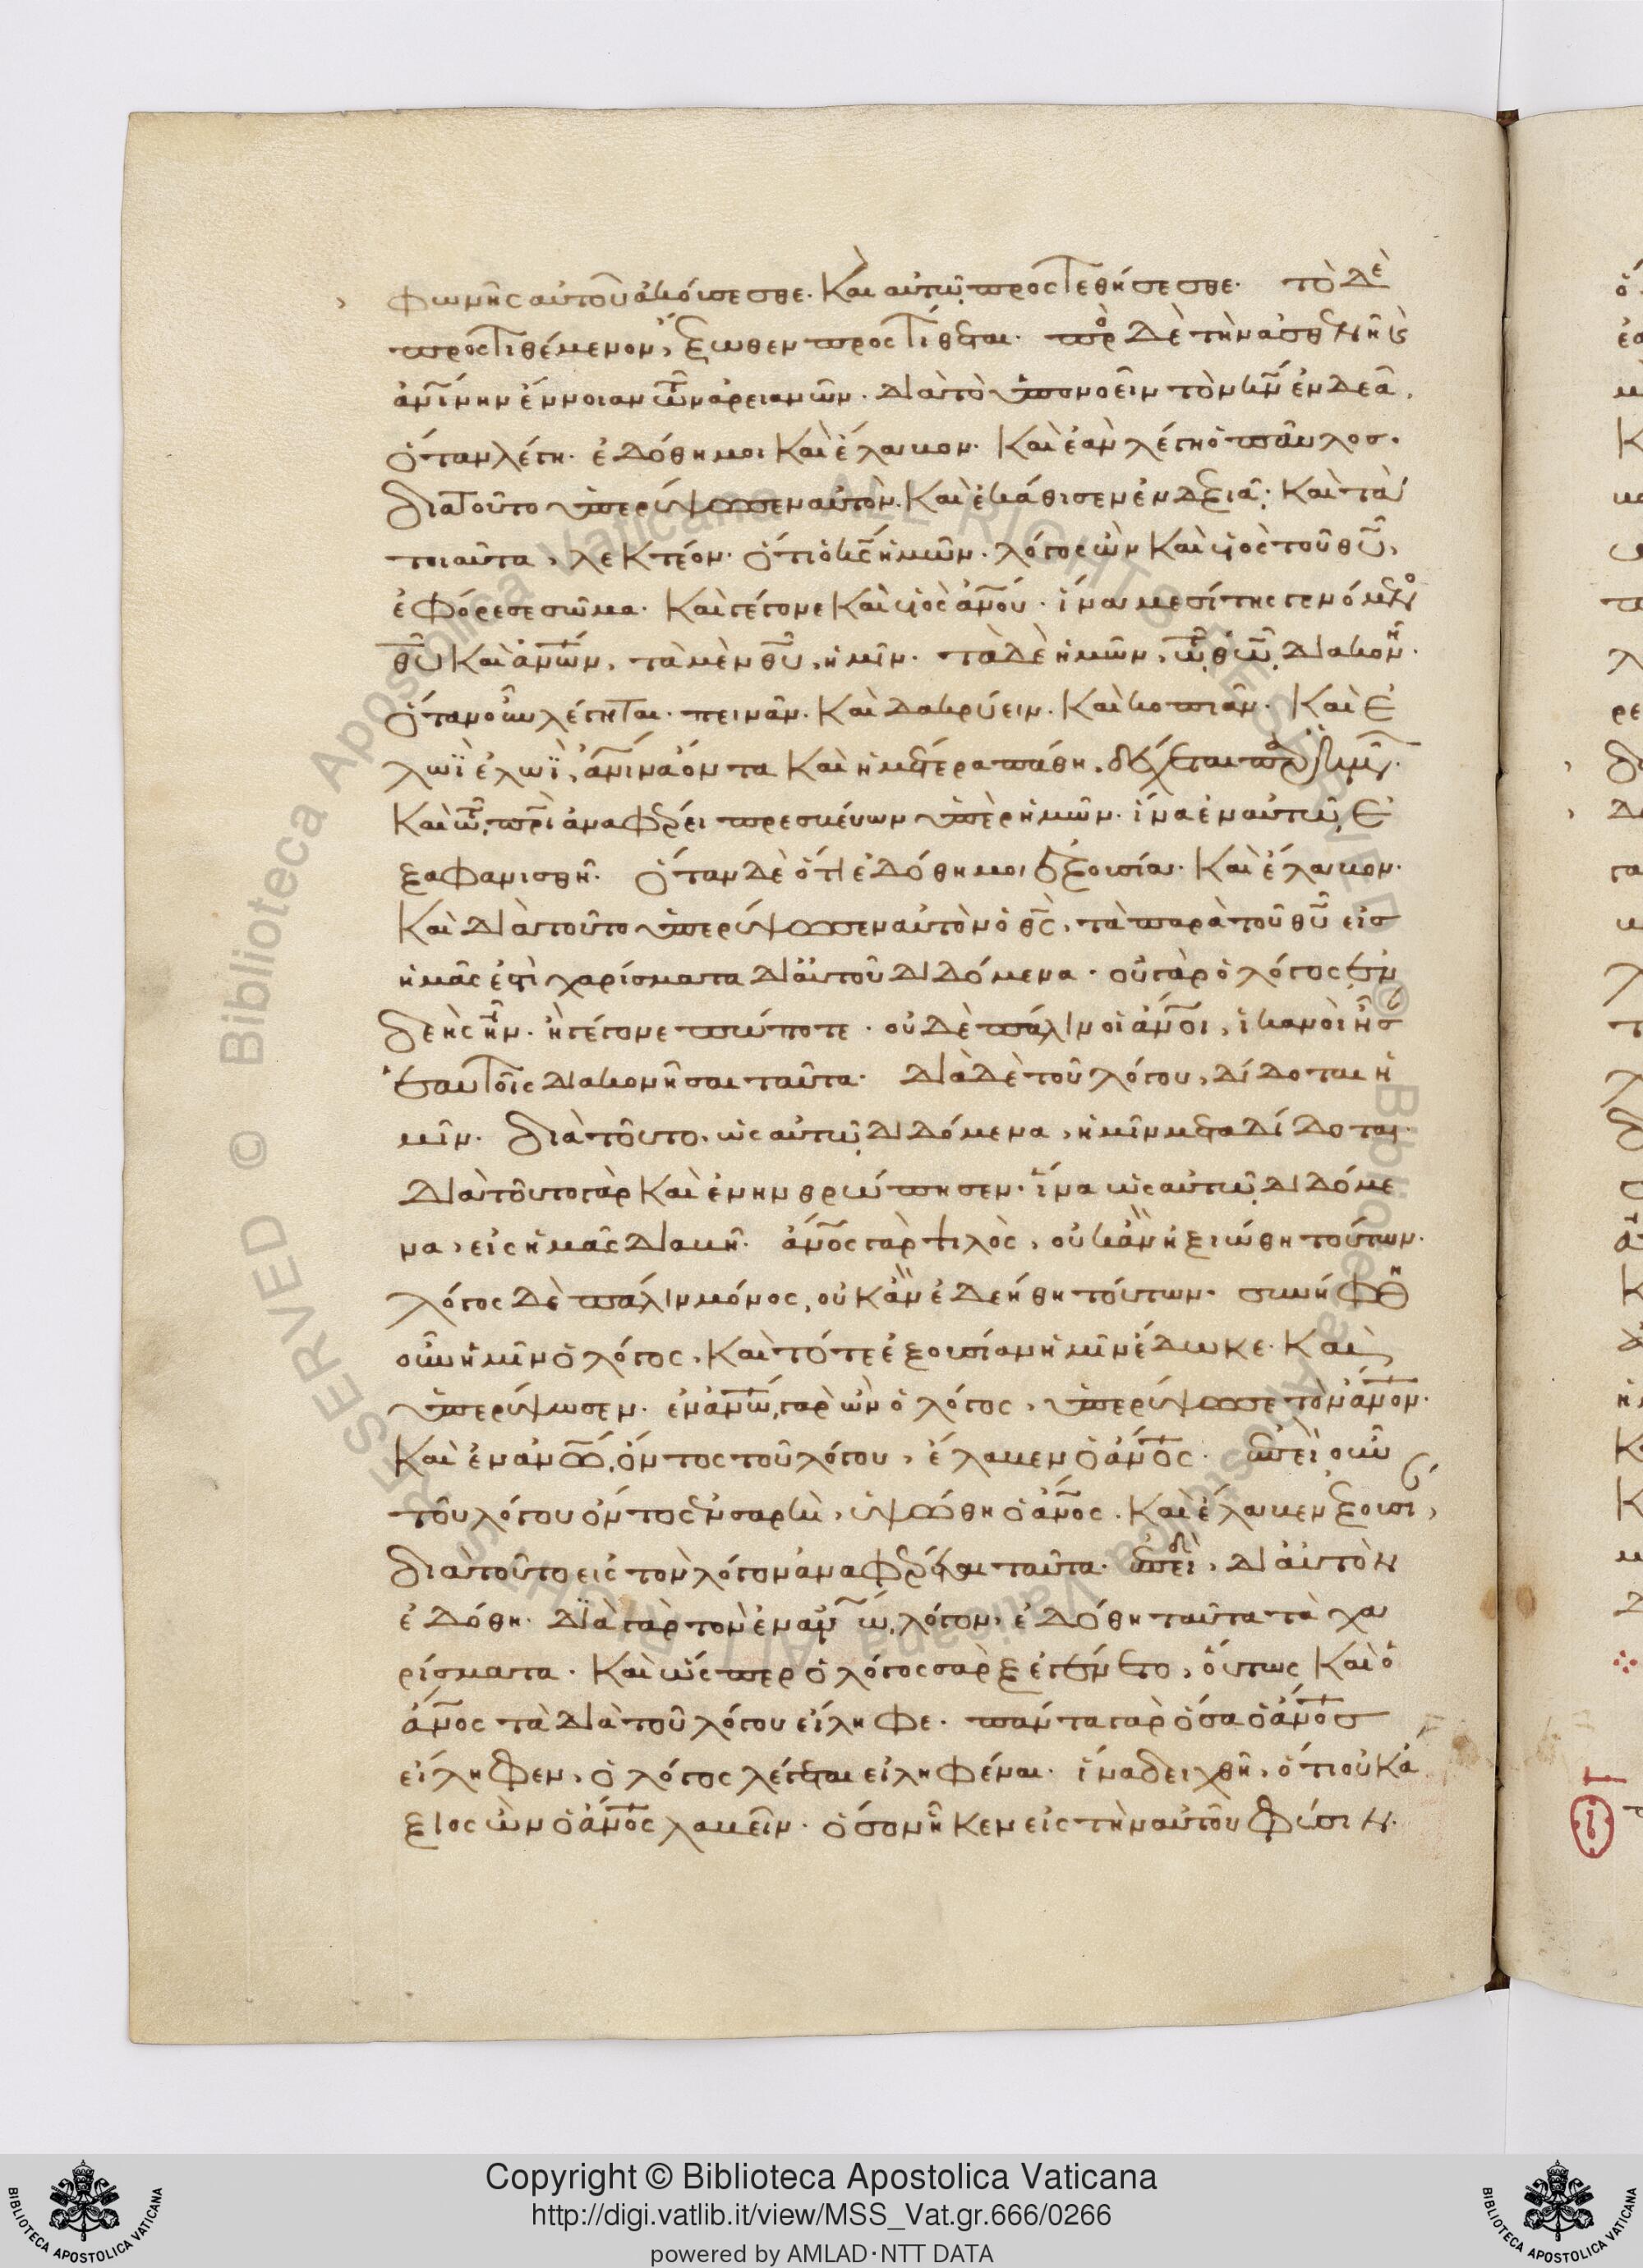 φωνῆς αὐτοῦ ἀκούσεσθε. Καὶ αὐτῷ προστεθήσεσθε. τὸ δὲ
προστιθέμενον, ἔξωθεν προστίθεται. πρὸ δὲ τὴν ἀσθενῆ κ
ἀνίνην ἔννοιαν τῶν ἀρειανῶν. διὰ τὸ ὑπονοεῖν τὸν κν ἐνδεᾶ,
ὅταν λέγη. ἐδόθη μοι Καὶ ἔλαβον. Καὶ ἐὰν λέγη ὁ παῦλος.
διατοῦτο ὑπερύψωσεν αὐτὸν. Καὶ ἐκάθισεν ἐν δεξιᾷ. Καὶ τὰ
τοιαῦτα, λεκτέον. ὅτι ὁ κς ἡμῶν. λόγος ὢν Καὶ υἱὸς τοῦ θυ,
ἐφόρεσε σῶμα. Καὶ γέγονε Καὶ υἱὸς ἀνου. ἵνα μεσίτης γενόμενο
θυ Καὶ ἀνων, τὰ μὲν θυ, ἡμῖν. τὰ δὲ ἡμῶν, τῷ θω διακονῆ.
ὅταν οὖν λέγηται. πεινᾶν. Καὶ δακρύειν. Καὶ κοπιᾶν. Καὶ ἐ
λωῒ ἐλωῒ, ἀνινα ὄντα Καὶ ἡμέτερα πάθη, δέχεται παρ ἡμῶν.
Καὶ τῷ πρι ἀναφέρει πρεσβεύων ὑπὲρ ἡμῶν. ἵνα ἐν αὐτῷ ἐ
ξαφανισθῆ. ὅταν δὲ ὅτι ἐδόθη μοι ἐξουσία. Καὶ ἔλαβον.
Καὶ διὰ τοῦτο ὑπερύψωσεν αὐτὸν ὁ θς, τὰ παρὰ τοῦ θυ εἰσ
ἡμᾶς ἐστι χαρίσματα δι αὐτοῦ διδόμενα. οὐ γὰρ ὁ λόγος ἐν
δεὴς ἦν. ἢ γέγονε πώποτε. οὐδὲ πάλιν οἱ ἀνοι, ἱκανοὶ ἦσ
ἑαυτοῖς διακονῆσαι ταῦτα. διὰ δὲ τοῦ λόγου, δίδοται ἡ
μῖν. διὰ τοῦτο. ὡς αὐτῷ διδόμενα, ἡμῖν μεταδίδοται.
διὰ τοῦτο γὰρ Καὶ ἐνηνθρώπησεν. ἵνα ὡς αὐτῷ διδόμε
να, εἰς ἡμᾶς διαβῆ. ἀνος γὰρ ψιλὸς, οὐκ ἂν ἠξιώθη τούτων.
λόγος δὲ πάλιν μόνος, οὐκ ἂν ἐδεήθη τούτων. συνήφθη
οὖν ἡμῖν ὁ λόγος. Καὶ τότε ἐξουσίαν ἡμῖν ἔδωκε. Καὶ
ὑπερύψωσεν. ἐν ἀνω γὰρ ὢν ὁ λόγος, ὑπερύψωσε τὸν ἀνον.
Καὶ ἐν ἀνω, ὄντος τοῦ λόγου, ἔλαβεν ὁ ἀνος. ἐπεὶ οὖν
τοῦ λόγου ὄντος ἐν σαρκὶ, ὑψώθη ὁ ἀνος. Καὶ ἔλαβεν ἐξουσι,
διὰ τοῦτο εἰς τὸν λόγον ἀναφέρεται ταῦτα. ἐπειδὴ, δι αὐτὸν
ἐδόθη. διὰ γὰρ τὸν ἐν ανω, λόγον, ἐδόθη ταῦτα τὰ χα
ρίσματα. Καὶ ὥσπερ ὁ λόγος σὰρξ ἐγένετο, οὕτως Καὶ ὁ
ἀνος τὰ διὰ τοῦ λόγου εἴληφε. πάντα γὰρ ὅσα ὁ ἀνοσ
εἴληφεν, ὁ λόγος λέγεται εἰληφέναι. ἵνα δειχθῆ, ὅτι οὐκ ἄ
ξιος ὢν ὁ ἀνος λαβεῖν. ὅσον ἧκεν εἰς τὴν αὐτοῦ φύσιν.
Copyright © Biblioteca Apostolica Vaticana
http://digi.vatlib.it/view/MSS_Vat.gr.666/0266
powered by AMLAD·NTT DATA